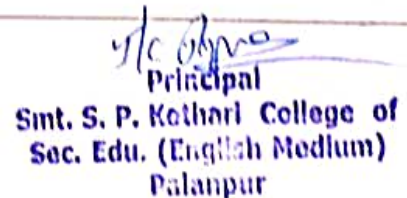 Principal
Smt. S. P. Kothari College of
Sec. Edu. (English Medium)
Palanpur